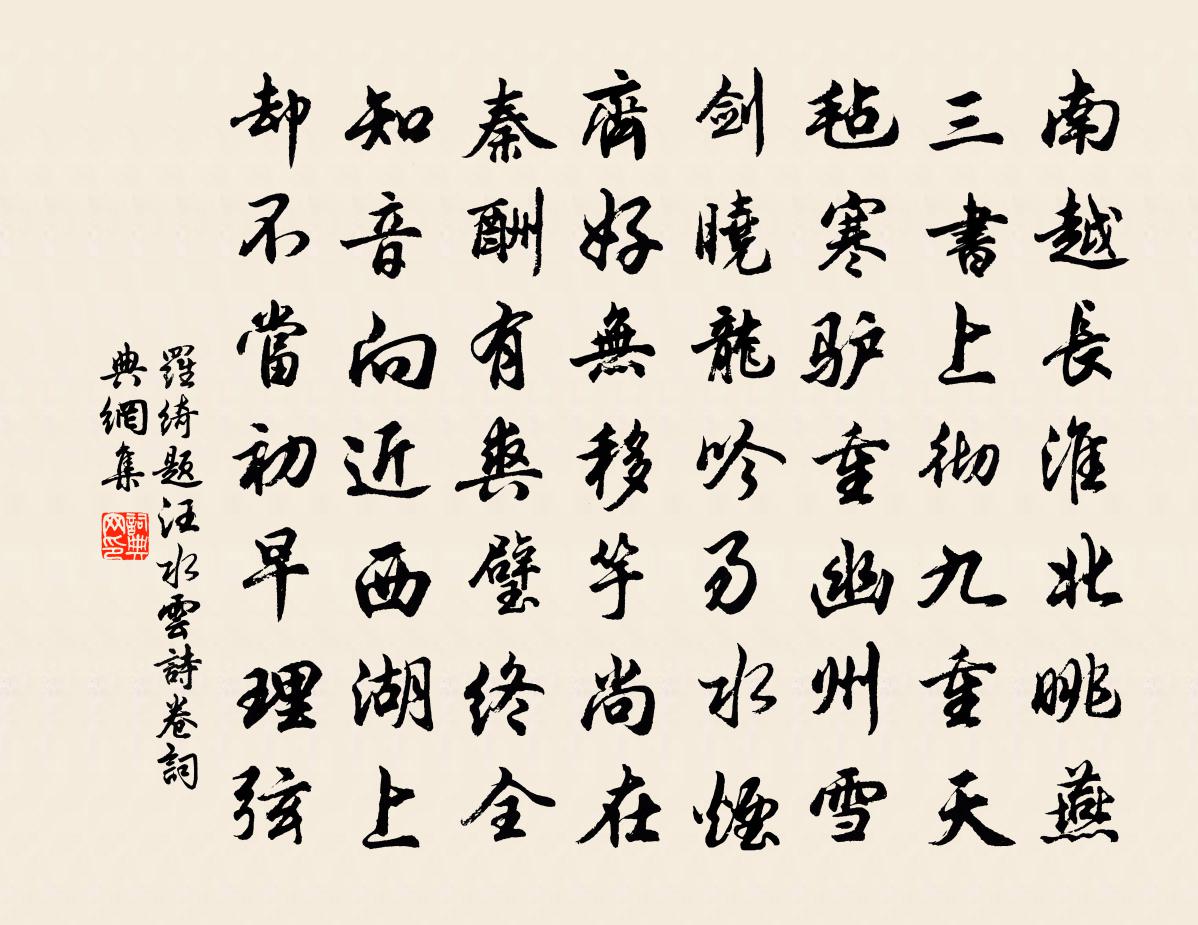 南越長淮北眺燕
三書上彻九重天
毡寒驴重幽州雪
劍曉龍吟易水煙
齊好無移竽尚在
秦酬有爽璧終全
知音向近西湖上
却不當初早理弦
羅綺题汪水雲詩卷詞
典網集
詞典
网印